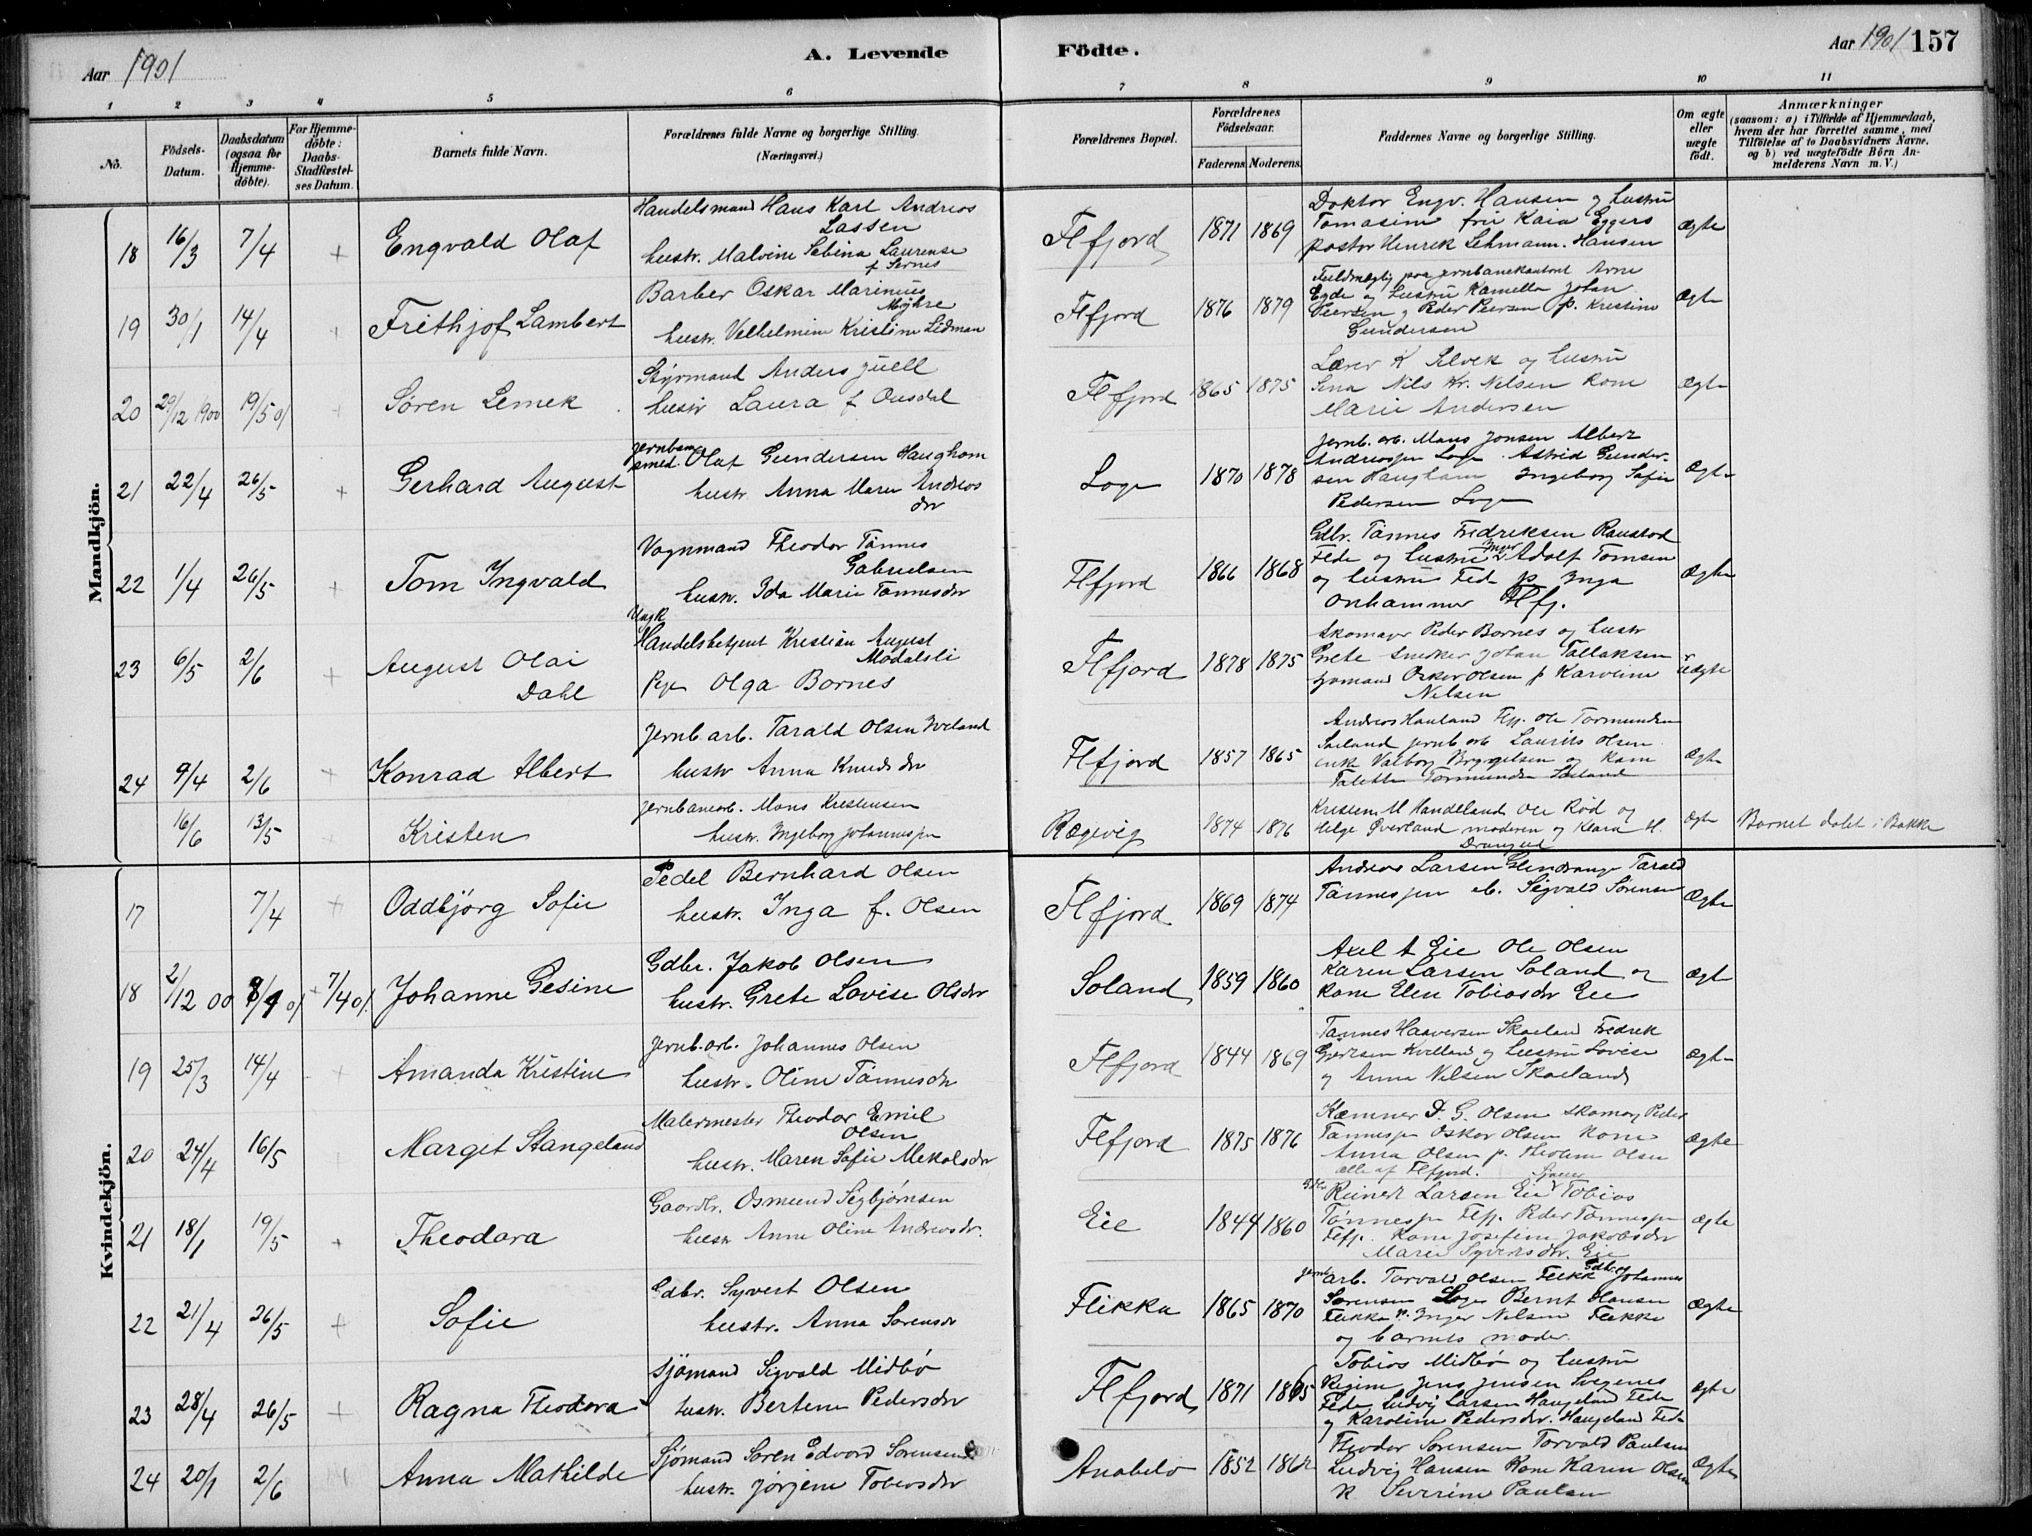 Aar 1901
A. Levende Födte.
Aar 1901 157
1 2 3 4 5 6 7 8 9 10 11
No. Födsels-Datum. Daabsdatum (ogsaa for Hjemme-döbte). For Hjemme-döbte: Daabs-Stadfæstel-ses Datum. Barnets fulde Navn. Forældrenes fulde Navne og borgerlige Stilling. (Næringsvei.) Forældrenes Bopæl. Forældrenes Födselsaar. Faderens. Moderens. Faddernes Navne og borgerlige Stilling. Om ægte eller uægte födt. Anmærkninger (saasom: a) i Tilfælde af Hjemmedaab, hvem der har forrettet samme, med Tilföielse af to Daabsvidners Navne, og b) ved uægtefödte Börn An-melderens Navn m. V.)
Mandkjön.
18 16/3 7/4 + Engvald Olaf
Handelsmand Hans Karl Andreas Lassen
hustr. Malvine Sabina Laurense
Flfjord 1871 1869
Doktor Engv. Hansen og hustru
Tomasine frk Kaia Eggers
pastor Henrik Lehmann. Hansen
ægte
19 30/1 14/4 + Frithjof Lambert
Barber Oskar Marinius Myhre
hustr. Velhelmine Kristine Lidman
Flfjord 1876 1879
Fuldmægtig paa jernbanekontoret Arne
Egde og hustru Kamella Johan
Peersen og Peder Peersen p. Kristine
Gundersen
Ægte
20 29/12 1900 19/5 01 + Søren Lemek
Styrmand Anders Juell
hustr Laura f Ousdal
Flfjord 1865 1875
Lærer K Selvek og hustru
Sina Nils Kr. Nilsen Kone
Marie Andersen
Ægte
21 22/4 26/5 + Gerhard August
Jernbane smed. Olaf Gundersen Haughom
hustr. Anna Marie Andreas dtr
Loge 1870 1878
Jernb. arb. Mons Jonsen Albert
Andreassen Loge. Astrid Gunder-
sen Haughom Ingeborg Sofie
Pedersen Loge
Ægte
22 1/4 26/5 + Tom Ingvald
Vognmand Theodor Tønnes Gabrielsen
hustr. Ida Marie Tønnesdtr
Flfjord 1866 1868
Gdbr. Tønnes Fredriksen Raustad
Fede og hustru Inger Adolf Tomsen
og hustru Fed p Inga
Onhammer Flfj.
Ægte
23 6/5 2/6 + August Olai Dahl
Ungk Handelsbetjent Kristian August Modalsli
Pige Olga Bornes
Flfjord 1878 1875
Skomager Peder Bornes og hustr
Grete Snekker Johan Tallaksen
Sjømand Oskar Olsen p Karoline
Nilsen
uægte
24 9/4 2/6 + Konrad Albert
Jernb. arb. Tarald Olsen Iveland
hustr Anna Knudsdtr
Flfjord 1857 1865
Andreas Hauland Flfj. Ole Tormundsen
Søeland jernb arb Laurits Olsen
enk Valborg Bryggelsen og Kone
Talette Tormundsen Søeland
Ægte
16/6 13/5 + Kristen
Jernbanearb. Mons Kristensen
hustr. Ingeborg Johannessen
Rægevig 1874 1876
Kristen M Handeland Ole Rød og
Helge Øverland moderen og Klara M.
Drangeid
Ægte
Barnet døbt i Bakke
Kvindekjön.
17 7/4 + Oddbjörg Sofie
Pedel Bernhard Olsen
hustr. Inga f. Olsen
Flfjord 1869 1874
Andreas Larsen Glendrange Tarald
Tønnessen Sigvald Sørensen
Ægte
18 2/12 00 01 7/4 01 Johanne Gesine
Gdbr. Jakob Olsen
hustr. Grete Lovise Olsdtr
Soland 1859 1860
Axel A Eie Ole Olsen
Karen Larsen Soland og
Kone Elen Tobiasdtr Eie
ægt
19 25/3 14/4 + Amanda Kristine
Jernb. arb. Johannes Olsen
hustr. Oline Tønnesdtr
Flfjord 1844 1869
Tønnes Haaversen Skoeland Fredrek
Kvelland og hustru Lovise
og Anna Nilsen Skoeland
Ægte
20 24/4 16/5 Margit Stangeland
Malermester Theodor Emil Olsen
hustr. Maren Sofie Mekalsdtr
Flfjord 1875 1876
Kæmner D. G. Olsen Skomag Peder
Tønnessen Oskar Olsen kone
Anna Olsen p. Oline Olsen
alle af Flfjord.
ægte
21 18/1 19/5 + Theodora
Gaardbr. Osmund Sigbjørnsen
hustr Anne Oline Andreasdtr.
Eie 1844 1860
Gdbr Reinert Larsen Eie Tobias
Tønnessen Flfj. Peder Tønnessen
Flfj. Kone Josefine Jakobsdtr
Marie Syvertsdtr. Eie
ægte
22 21/4 26/5 + Sofie
Gdbr. Syvert Olsen
hustr. Anna Sørensdtr
Flikka 1865 1870
Jernb arb. Torvald Olsen Flikk Gdbr. Johannes
Sørensen Loge Bernt Hansen
Flikke p. Inger Nilsen Flikke
og barnets moder.
Ægte
23 28/4 26/5 + Ragna Theodora
Sjömand Sigvald Midbø
hustr. Bertine Pedersdtr
Flfjord 1871 1865
Tobias Midbø og hustru
Regine Jens Jensen Svegenes
Fede Ludvig Larsen Haugeland Fede
og Karoline Pedersdtr. Haugeland Fede
Ægte
24 20/1 2/6 Anna Mathilde
Sjømand Søren Edvard Sørensen
hustr. Jørgine Tobiasdtr
Anabelø 1852 1862
Theodor Sørensen Torvald Paulsen
Ludvig Hansen Kone Karen Olsen
K Severine Paulsen
Ægte